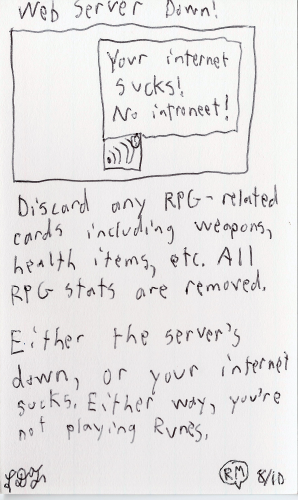 Web Server Down!
Your internet
sucks!
No introneet!
Discard any RPG-related
cards including weapons,
health items, etc. All
RPG stats are removed.
Either the server's
down, or your internet
sucks. Either way, you're
not playing Runes.
RM 8/10